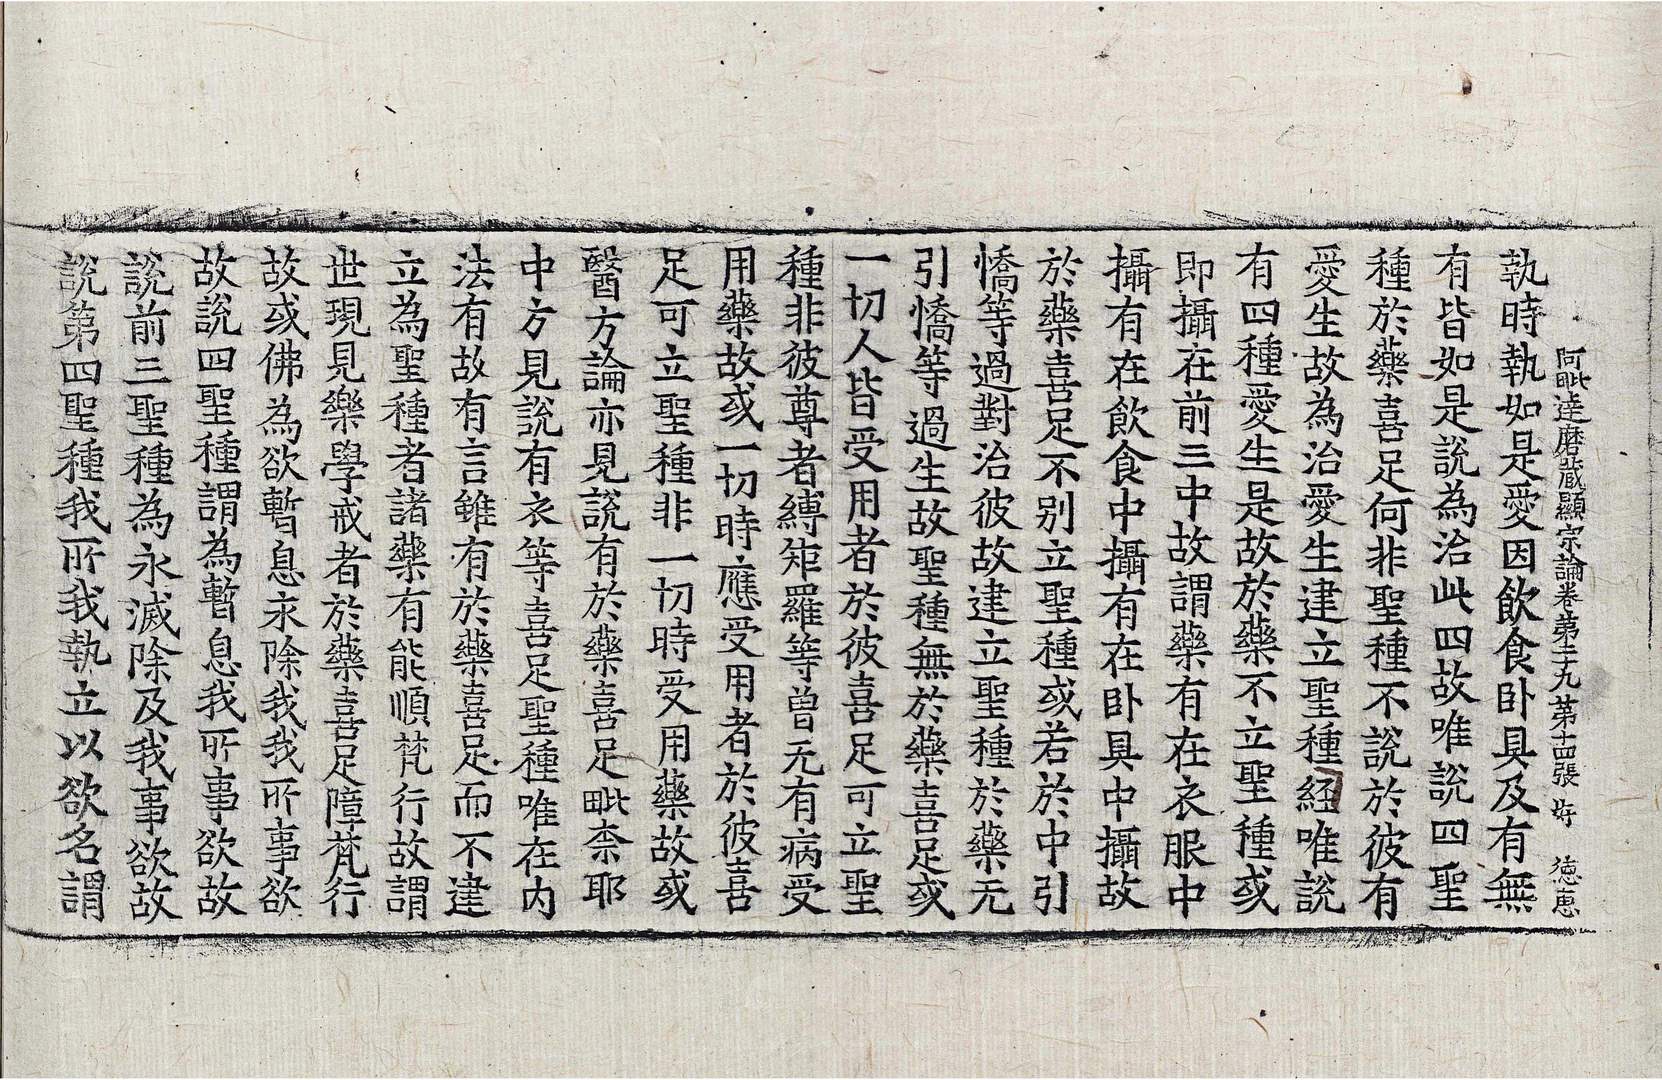 阿毗達磨藏顯宗論卷第二十九 第十四張 好 德惠
執時執如是愛因飲食卧具及有無
有皆如是說為治此四故唯說四聖
種於藥喜足何非聖種不說於彼有
愛生故為治愛生建立聖種經唯說
有四種愛生是故於藥不立聖種或
即攝在前三中故謂藥有在衣服中
攝有在飲食中攝有在卧具中攝故
於藥喜足不別立聖種或若於中引
憍等過對治彼故建立聖種於藥无
引憍等過生故聖種無於藥喜足或
一切人皆受用者於彼喜足可立聖
種非彼尊者縛矩羅等曾无有病受
用藥故或一切時應受用者於彼喜
足可立聖種非一切時受用藥故或
醫方論亦見說有於藥喜足毗柰耶
中方見說有衣等喜足聖種唯在內
法有故有言雖有於藥喜足而不建
立為聖種者諸藥有能順梵行故謂
世現見樂學戒者於藥喜足障梵行
故或佛為欲暫息永除我我所事欲
故說四聖種謂為暫息我所事欲故
說前三聖種為永滅除及我事欲故
說第四聖種我所我執立以欲名謂